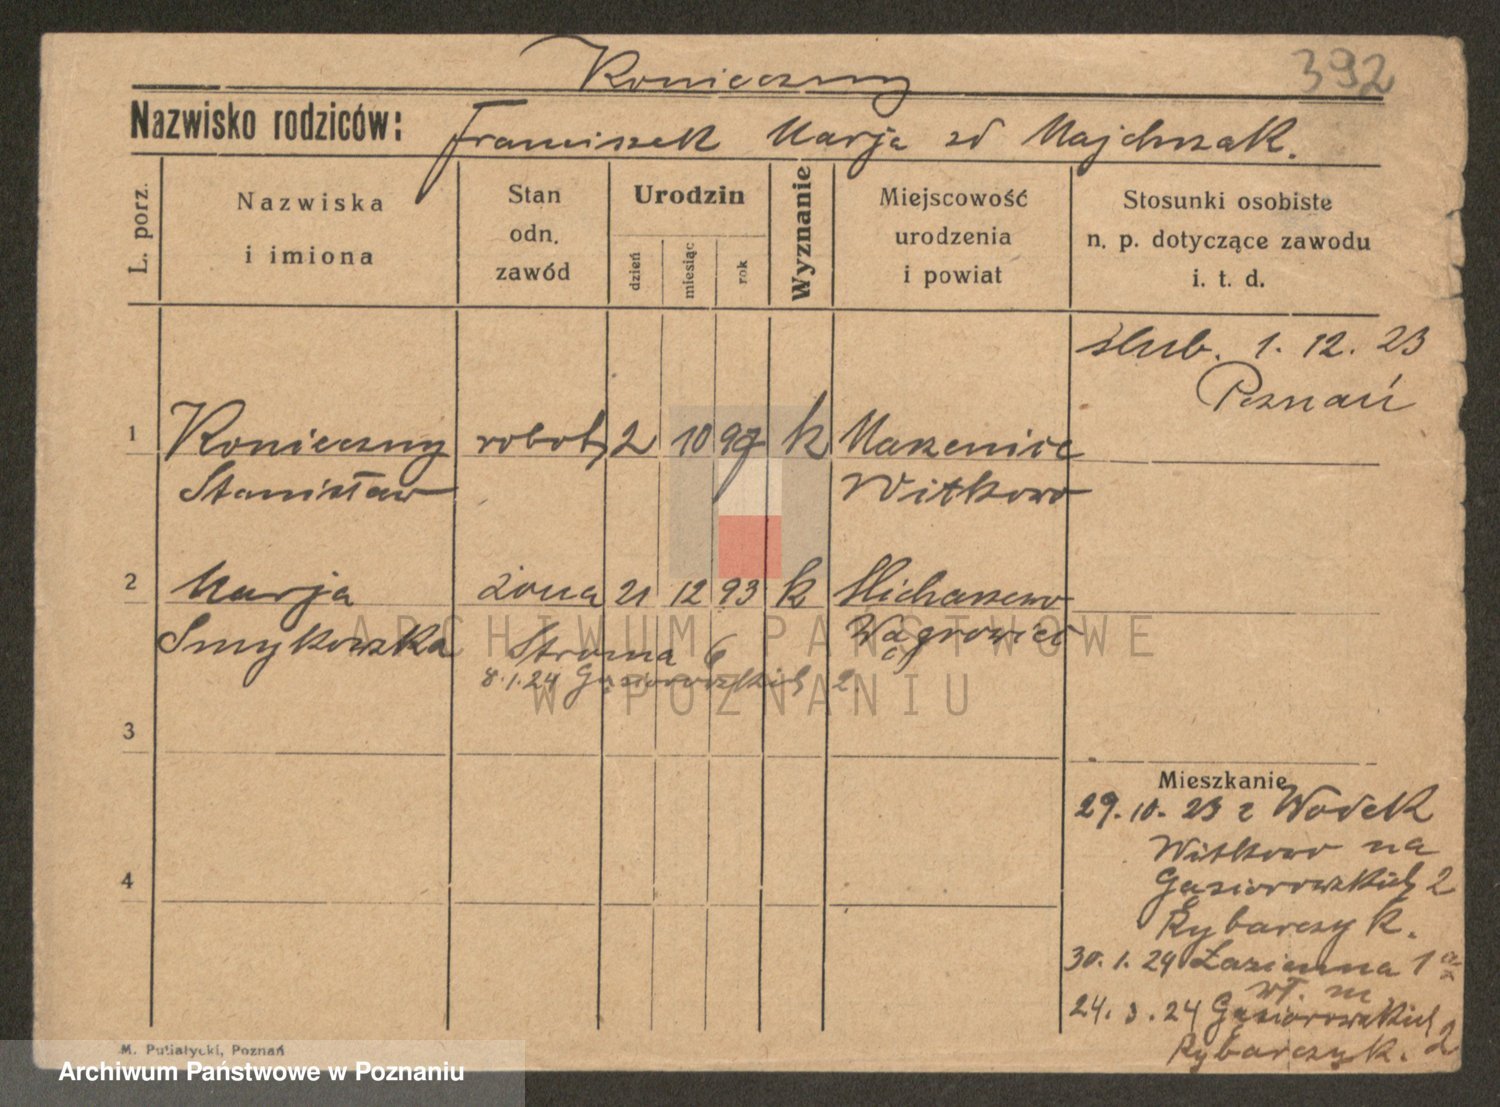 Konieczny
392
Nazwisko rodziców: Franciszek Marja zd Majchrzak.
L. porz.
Nazwiska
i imiona
Stan
odn.
zawód
Urodzin
dzień
miesiąc
rok
Wyznanie
Miejscowość
urodzenia
i powiat
Stosunki osobiste
n. p. dotyczące zawodu
i. t. d.
ślub. 1. 12. 23
Poznań
1 Konieczny robot, 2 10 97 k
Stanisław Witkowo
2 Marja żona 21 12 93 k
Smykowska Wągrowiec
Stroma 6
8.1.24 Gąsiorowskich 2
3
4
Mieszkanie
29. 10. 23 z Wódek
Witkowo na
Gąsiorowskich 2
Rybarczyk.
30. 1. 24 Łazienna 1a
wł. m
24. 3. 24 Gąsiorowskich 2
Rybarczyk.
M. Putiatycki, Poznań
ARCHIWUM PAŃSTWOWE
W POZNANIU
Archiwum Państwowe w Poznaniu